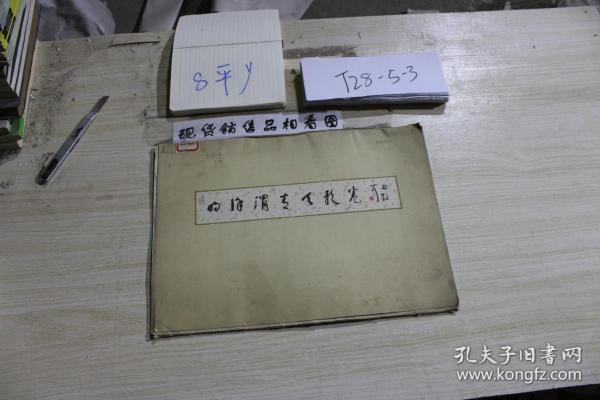 8平y
T28-5-3
现货销售品相看图
明徐渭青天歌卷
孔夫子旧书网
www.kongfz.com